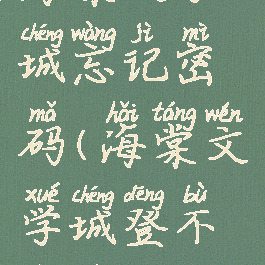 chéng wàng jì mì
城忘记密
mǎ hǎi táng wén
码(海棠文
xué chéng dēng bù
学城登不